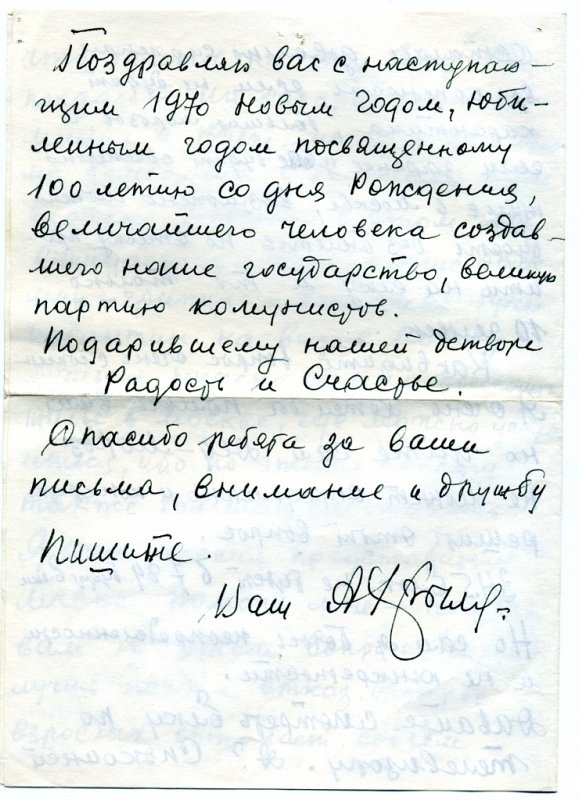 Поздравляю вас с наступаю-
щим 1970 новым годом, юби-
лейным годом посвященному
100 летию со дня Рождения,
величайшего человека создав-
шего наше государство, великую
партию комунистов.
Подарившему нашей детворе
Радость и Счастье.
Спасибо ребята за ваши
письма, внимание и дружбу
Пишите.
Ваш